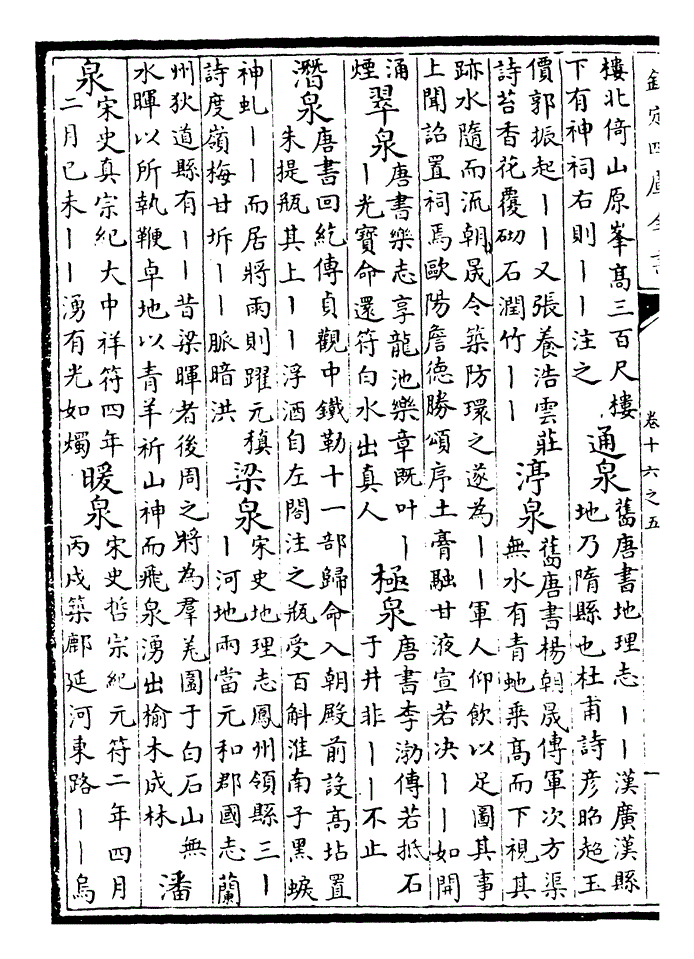 欽定四庫全書
卷十六之五
樓北倚山原峯高三百尺樓
下有神祠右則丨丨注之
通泉
舊唐書地理志丨丨漢廣漢縣
地乃隋縣也杜甫詩彦昭超玉
價郭振起丨丨又張養浩雲莊
詩苔香花覆砌石潤竹丨丨
渟泉
舊唐書楊朝晟傳軍次方渠
無水有青蛇乘高而下視其
跡水隨而流朝晟令築防環之遂為丨丨軍人仰飲以足圖其事
上聞詔置祠焉歐陽詹德勝頌序土膏融甘液宣若决丨丨如開
涌
煙
翠泉
唐書樂志享龍池樂章既叶丨
丨光寶命還符白水出真人
極泉
唐書李渤傳若抵石
于井非丨丨不止
潛泉
唐書回紇傳貞觀中鐵勒十一部歸命入朝殿前設高坫置
朱提瓶其上丨丨浮酒自左閤注之瓶受百斛淮南子黑蜧
神虬丨丨而居將雨則躍元稹
詩度嶺梅甘坼丨丨脈暗洪
梁泉
宋史地理志鳳州領縣三丨
丨河地兩當元和郡國志蘭
州狄道縣有丨丨昔梁暉者後周之將為羣羌圍于白石山無
水暉以所執鞭卓地以青羊祈山神而飛泉湧出榆木成林
潘
泉
宋史真宗紀大中祥符四年
二月已未丨丨湧有光如燭
暖泉
宋史哲宗紀元符二年四月
丙戌築鄜延河東路丨丨烏